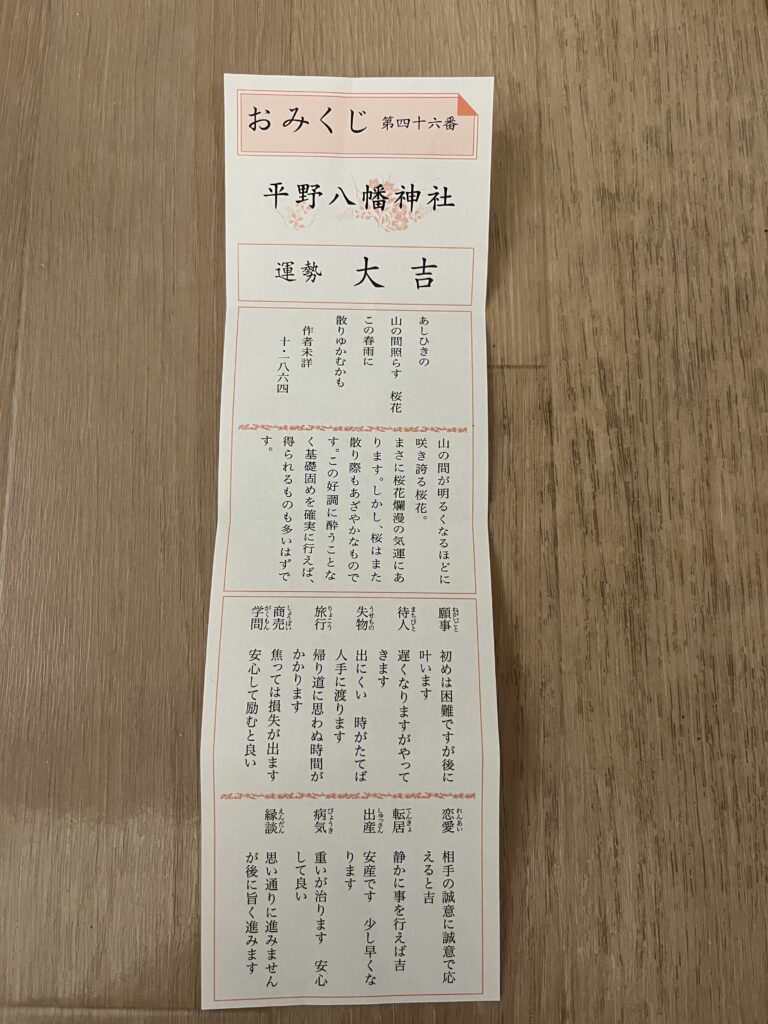 おみくじ 第四十六番
平野八幡神社
運勢 大吉
あしひきの
山の間照らす 桜花
この春雨に
散りゆかむかも
作者未詳
十・一八六四
山の間が明るくなるほどに
咲き誇る桜花。
まさに桜花爛漫の気運にあ
ります。しかし、桜はまた
散り際もあざやかなもので
す。この好調に酔うことな
く基礎固めを確実に行えば、
得られるものも多いはずで
す。
願事 ねがいごと 初めは困難ですが後に
叶います
待人 まちびと 遅くなりますがやって
きます
失物 うせもの 出にくい 時がたてば
人手に渡ります
旅行 りょこう 帰り道に思わぬ時間が
かかります
商売 しょうばい 焦っては損失が出ます
学問 がくもん 安心して励むと良い
恋愛 れんあい 相手の誠意に誠意で応
えると吉
転居 てんきょ 静かに事を行えば吉
出産 しゅっさん 安産です 少し早くな
ります
病気 びょうき 重いが治ります 安心
して良い
縁談 えんだん 思い通りに進みません
が後に旨く進みます